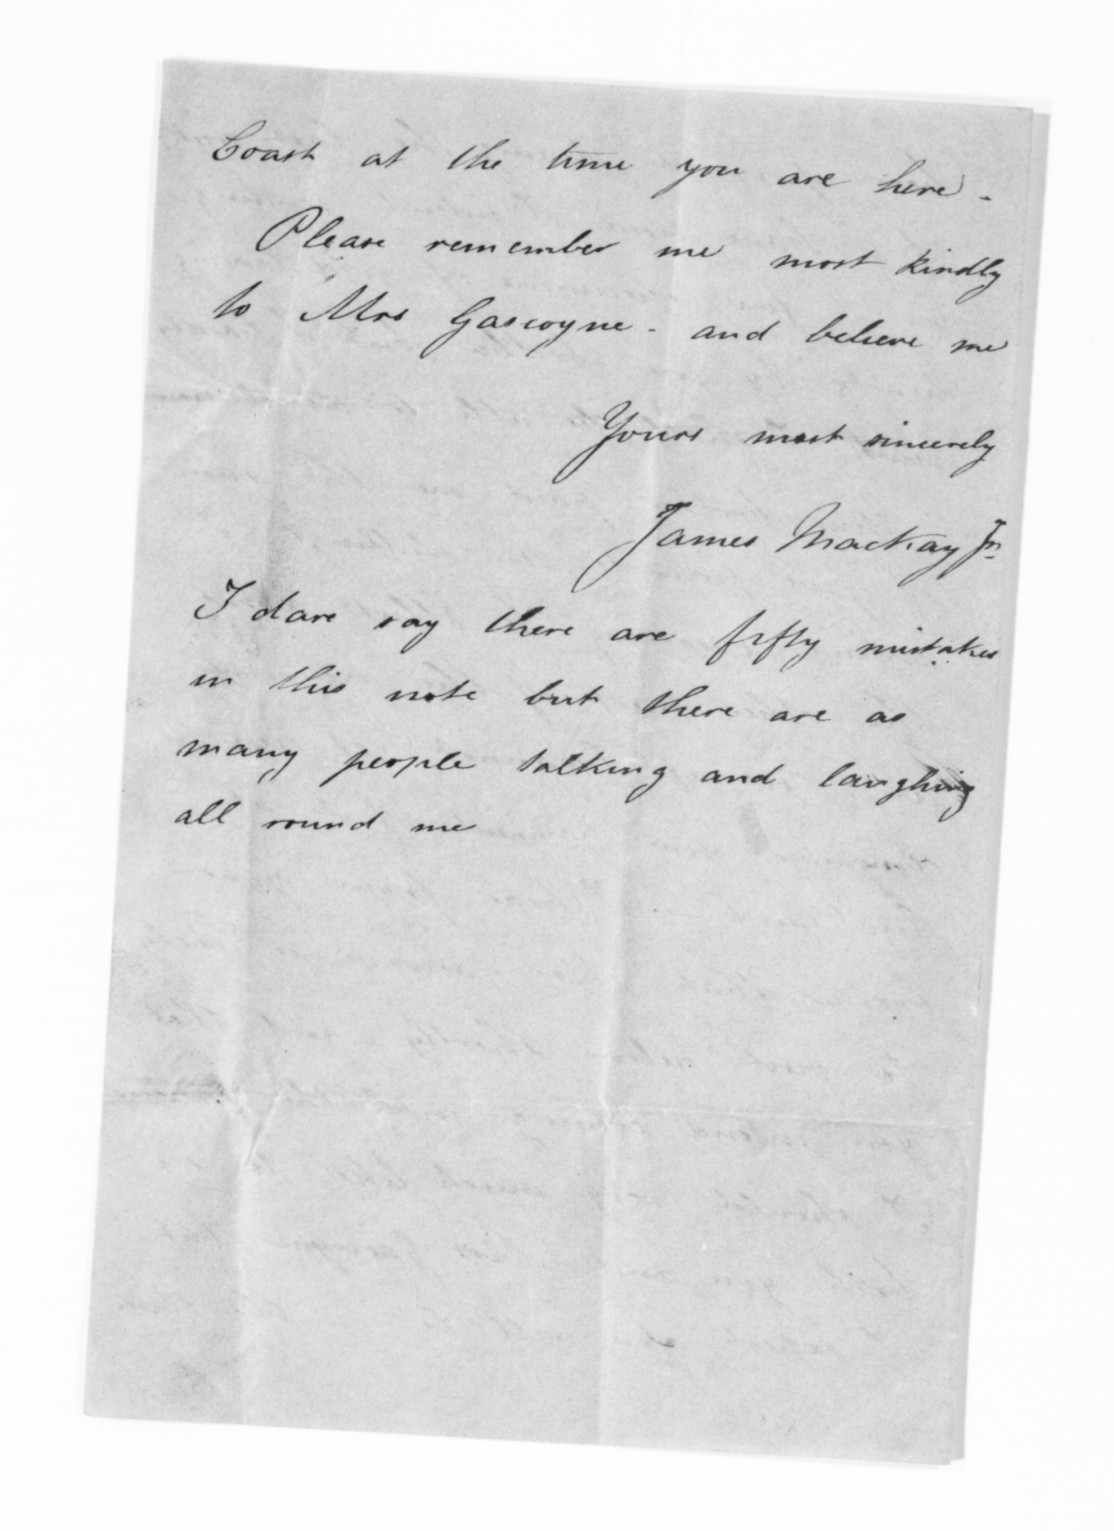 Coast at the time you are here -
Please remember me most kindly
to Mrs Gascoyne - and believe me
Yours most sincerely
James Mackay Jr.
I dare say there are fifty mistakes
in this note but there are as
many people talking and laughing
all round me